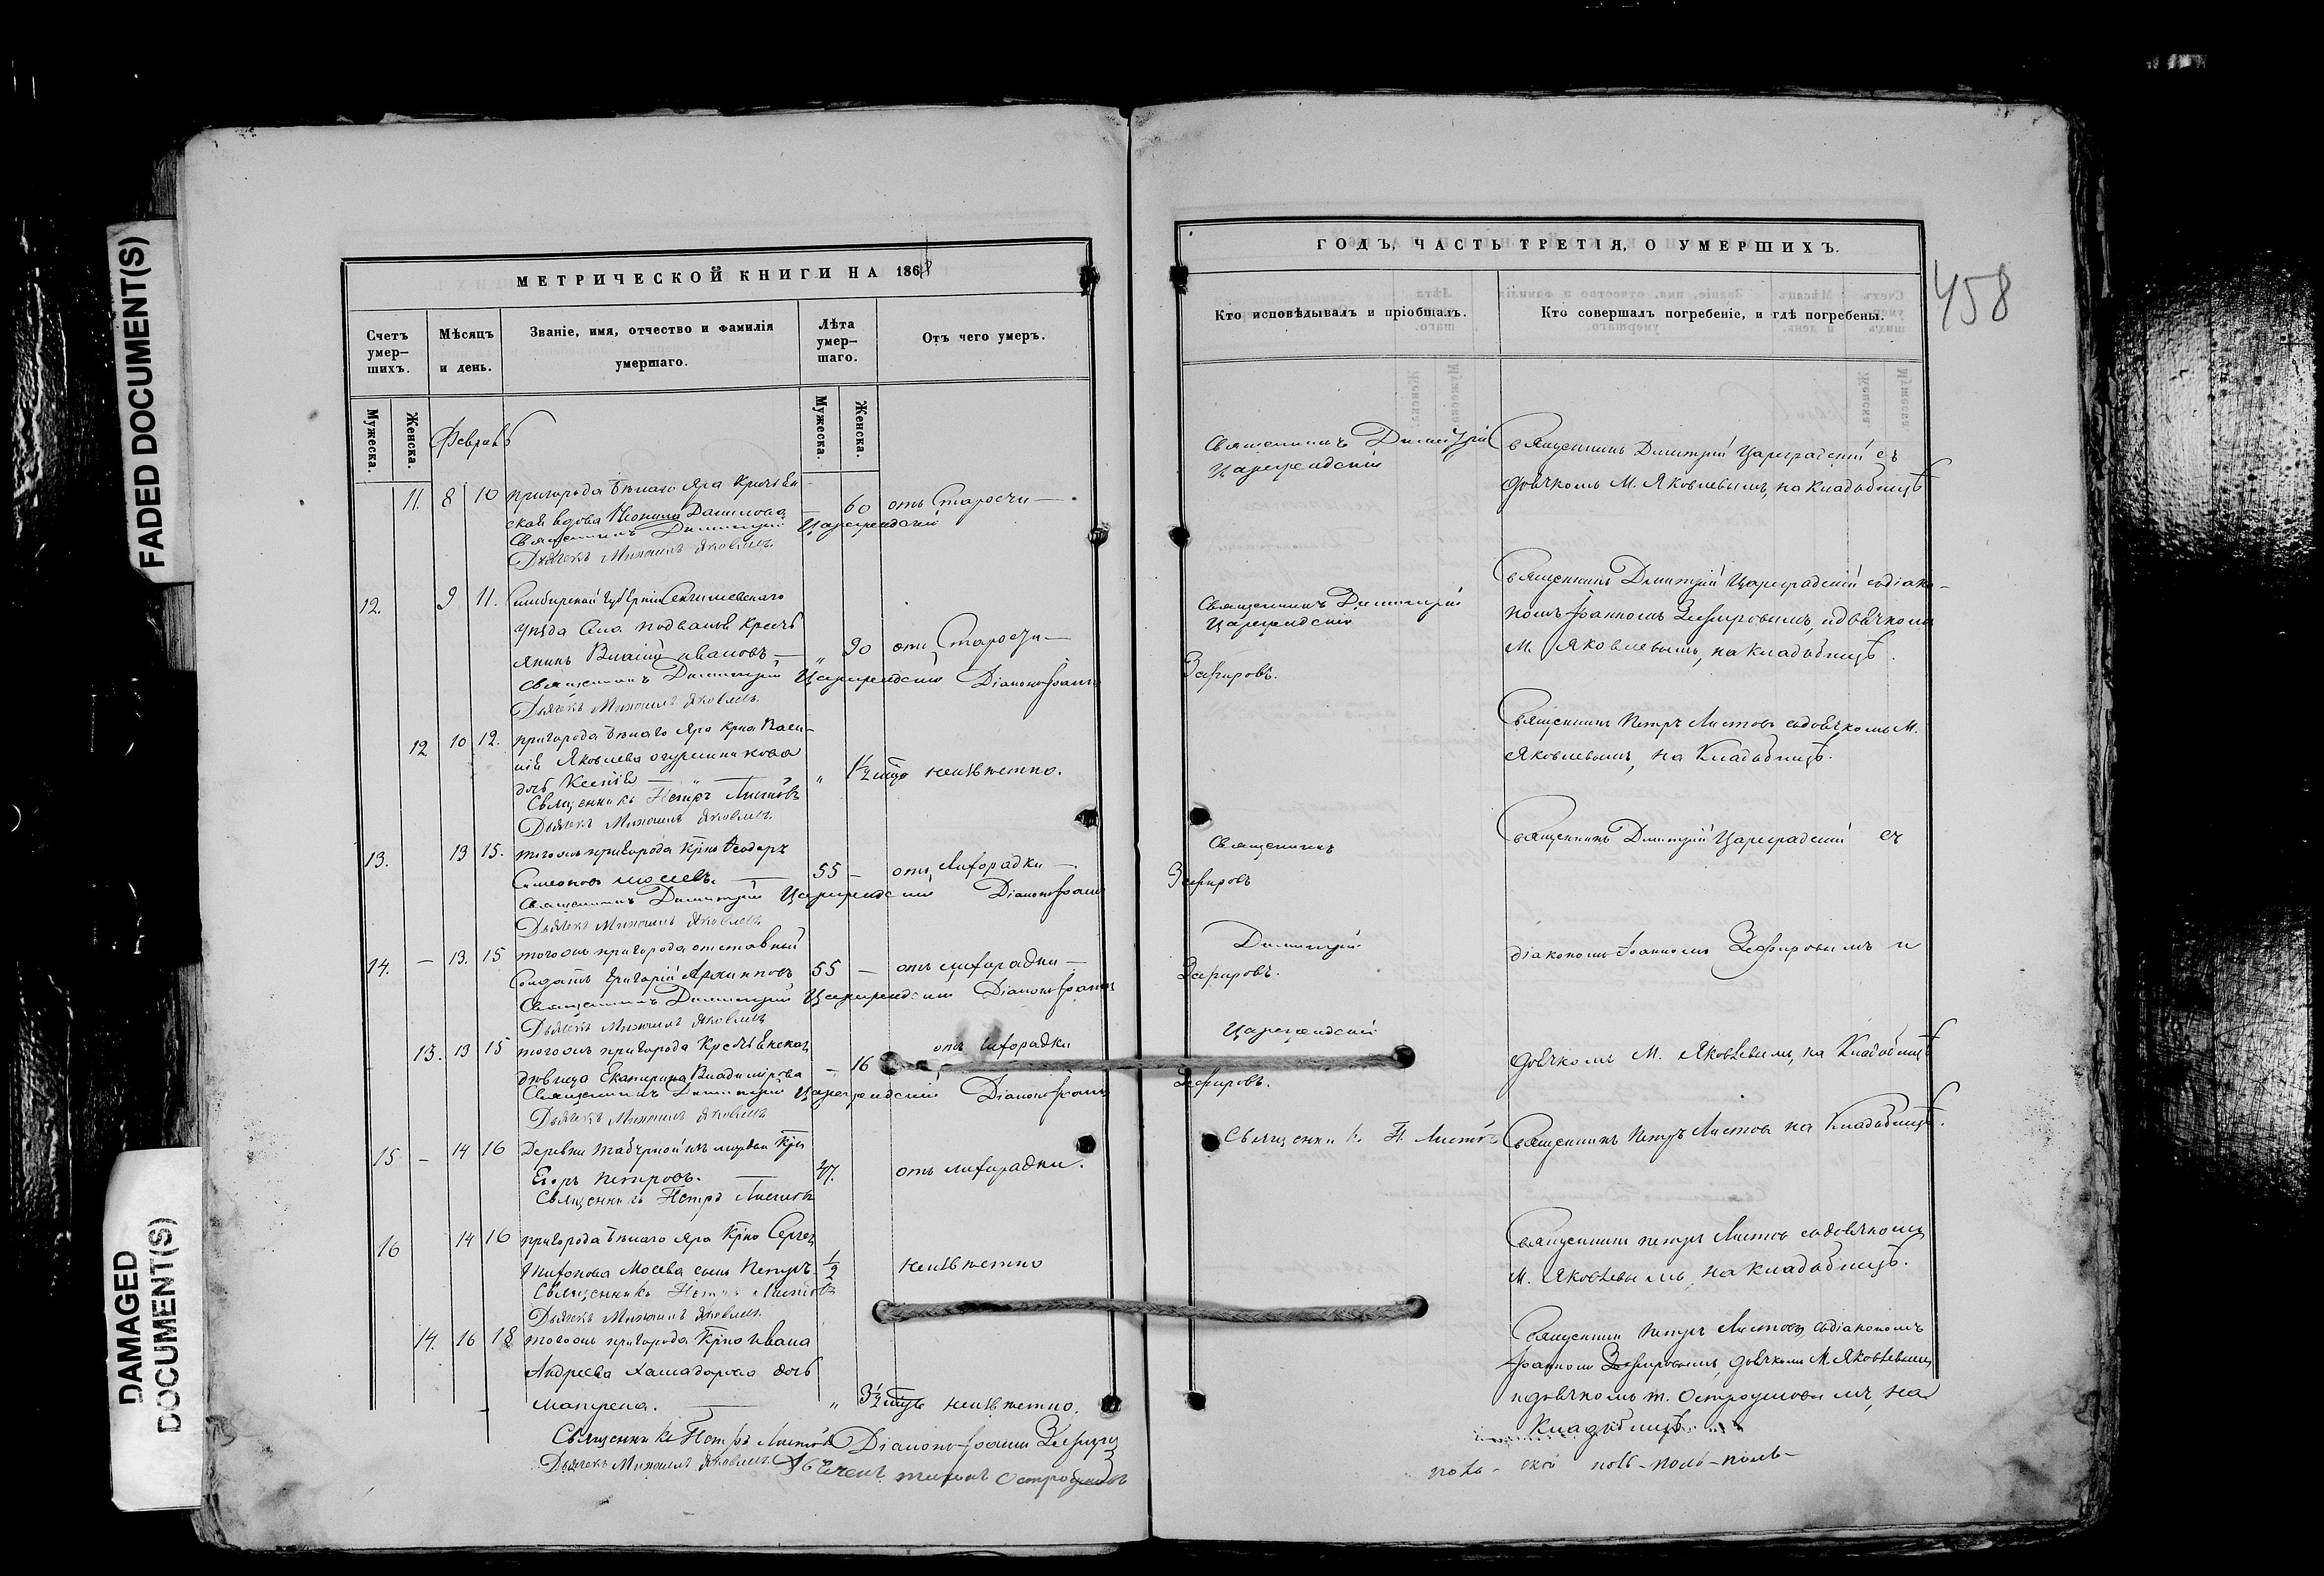 FADED DOCUMENT(S)
DAMAGED
DOCUMENT(S)
МЕТРИЧЕСКОЙ КНИГИ НА 1868
Счетъ умер-шихъ.
Мѣсяцъ и день.
Званіе, имя, отчество и фамилія умершаго.
Лѣта умер-шаго.
Отъ чего умеръ.
Мужеска.
Женска.
Мужеска.
Женска.
Февраль
11. 8 10 пригорода Бѣлаго Яра Крестьян
ская вдова Данилова — 60 отъ Старости —
Священникъ Димитрій Цареградскій
Дьячекъ Михаилъ Яковлевъ.
12. 9 11. Симбирской Губерніи Сенгилеевскаго
уѣзда Села Подвалья Кресть
янинъ Иванов — „ 90 отъ Старости —
Священникъ Димитрій Цареградскій Діаконъ Іоаннъ
Дьячекъ Михаилъ Яковлевъ.
12 10 12. пригорода Бѣлаго Яра Крна Васи-
лія Яковлева
дочь Ксенія — „ — „ 1½ неизвѣстно.
Священникъ Петръ Листовъ
Дьячекъ Михаилъ Яковлевъ.
13. 13 15. тогожъ пригорода Крнъ Ѳеодоръ
Симеоновъ — 55 — отъ Лихорадки —
Священникъ Димитрій Цареградскій Діаконъ Іоаннъ
Дьячекъ Михаилъ Яковлевъ
14. — 13. 15 тогожъ пригорода отставный
Солдатъ Григорій Архиповъ 55 — отъ лихорадки —
Священникъ Димитрій Цареградскій Діаконъ Іоаннъ
Дьячекъ Михаилъ Яковлевъ
13. 13 15 тогожъ пригорода Крестьянская
дѣвица Екатерина Владимірова — 16 отъ лихорадки
Священникъ Димитрій Цареградскій Діаконъ Іоаннъ
Дьячекъ Михаилъ Яковлевъ
15 — 14 16 Деревни
Егоръ Петровъ. — 47. отъ лихорадки.
Священникъ Петръ Листовъ
16 14 16 пригорода Бѣлаго Яра Крна Сергея
Тихонова Мосева сынъ Петръ ½ неизвѣстно
Священникъ Петръ Листовъ
Дьячекъ Михаилъ Яковлевъ.
14. 16 18 тогожъ пригорода Крна Ивана
Андреева дочь
Матрена. — „ 3½ неизвѣстно.
Священникъ Петръ Листовъ Діаконъ Іоаннъ Зефировъ
Дьячекъ Михаилъ Яковлевъ Остроумовъ
ГОДЪ, ЧАСТЬ ТРЕТІЯ, О УМЕРШИХЪ.
458
Кто исповѣдывалъ и пріобщалъ.
Кто совершалъ погребеніе, и гдѣ погребены.
Священникъ Димитрій
Цареградскій
Священникъ Димитрій Цареградскій съ
дьячкомъ М. Яковлевымъ, на Кладбищѣ
Священникъ Димитрій
Цареградскій
Зефировъ.
Священникъ Димитрій Цареградскій съ діако-
номъ Іоанномъ Зефировымъ, и дьячкомъ
М. Яковлевымъ, на Кладбищѣ.
Священникъ Петръ Листовъ съ дьячкомъ М.
Яковлевымъ, на Кладбищѣ.
Священникъ
Зефировъ
Димитрій
Зефировъ.
Цареградскій
Зефировъ.
Священникъ Димитрій Цареградскій съ
діакономъ Іоанномъ Зефировымъ и
дьячкомъ М. Яковлевымъ, на Кладбищѣ
Священникъ П. Листовъ
Священникъ Петръ Листовъ на Кладбищѣ.
Священникъ Петръ Листовъ съ дьячкомъ
М. Яковлевымъ, на Кладбищѣ.
Священникъ Петръ Листовъ съ діакономъ
Іоанномъ Зефировымъ, дьячкомъ М. Яковлевымъ
и дьячкомъ т. Остроумовымъ, на
Кладбищѣ.